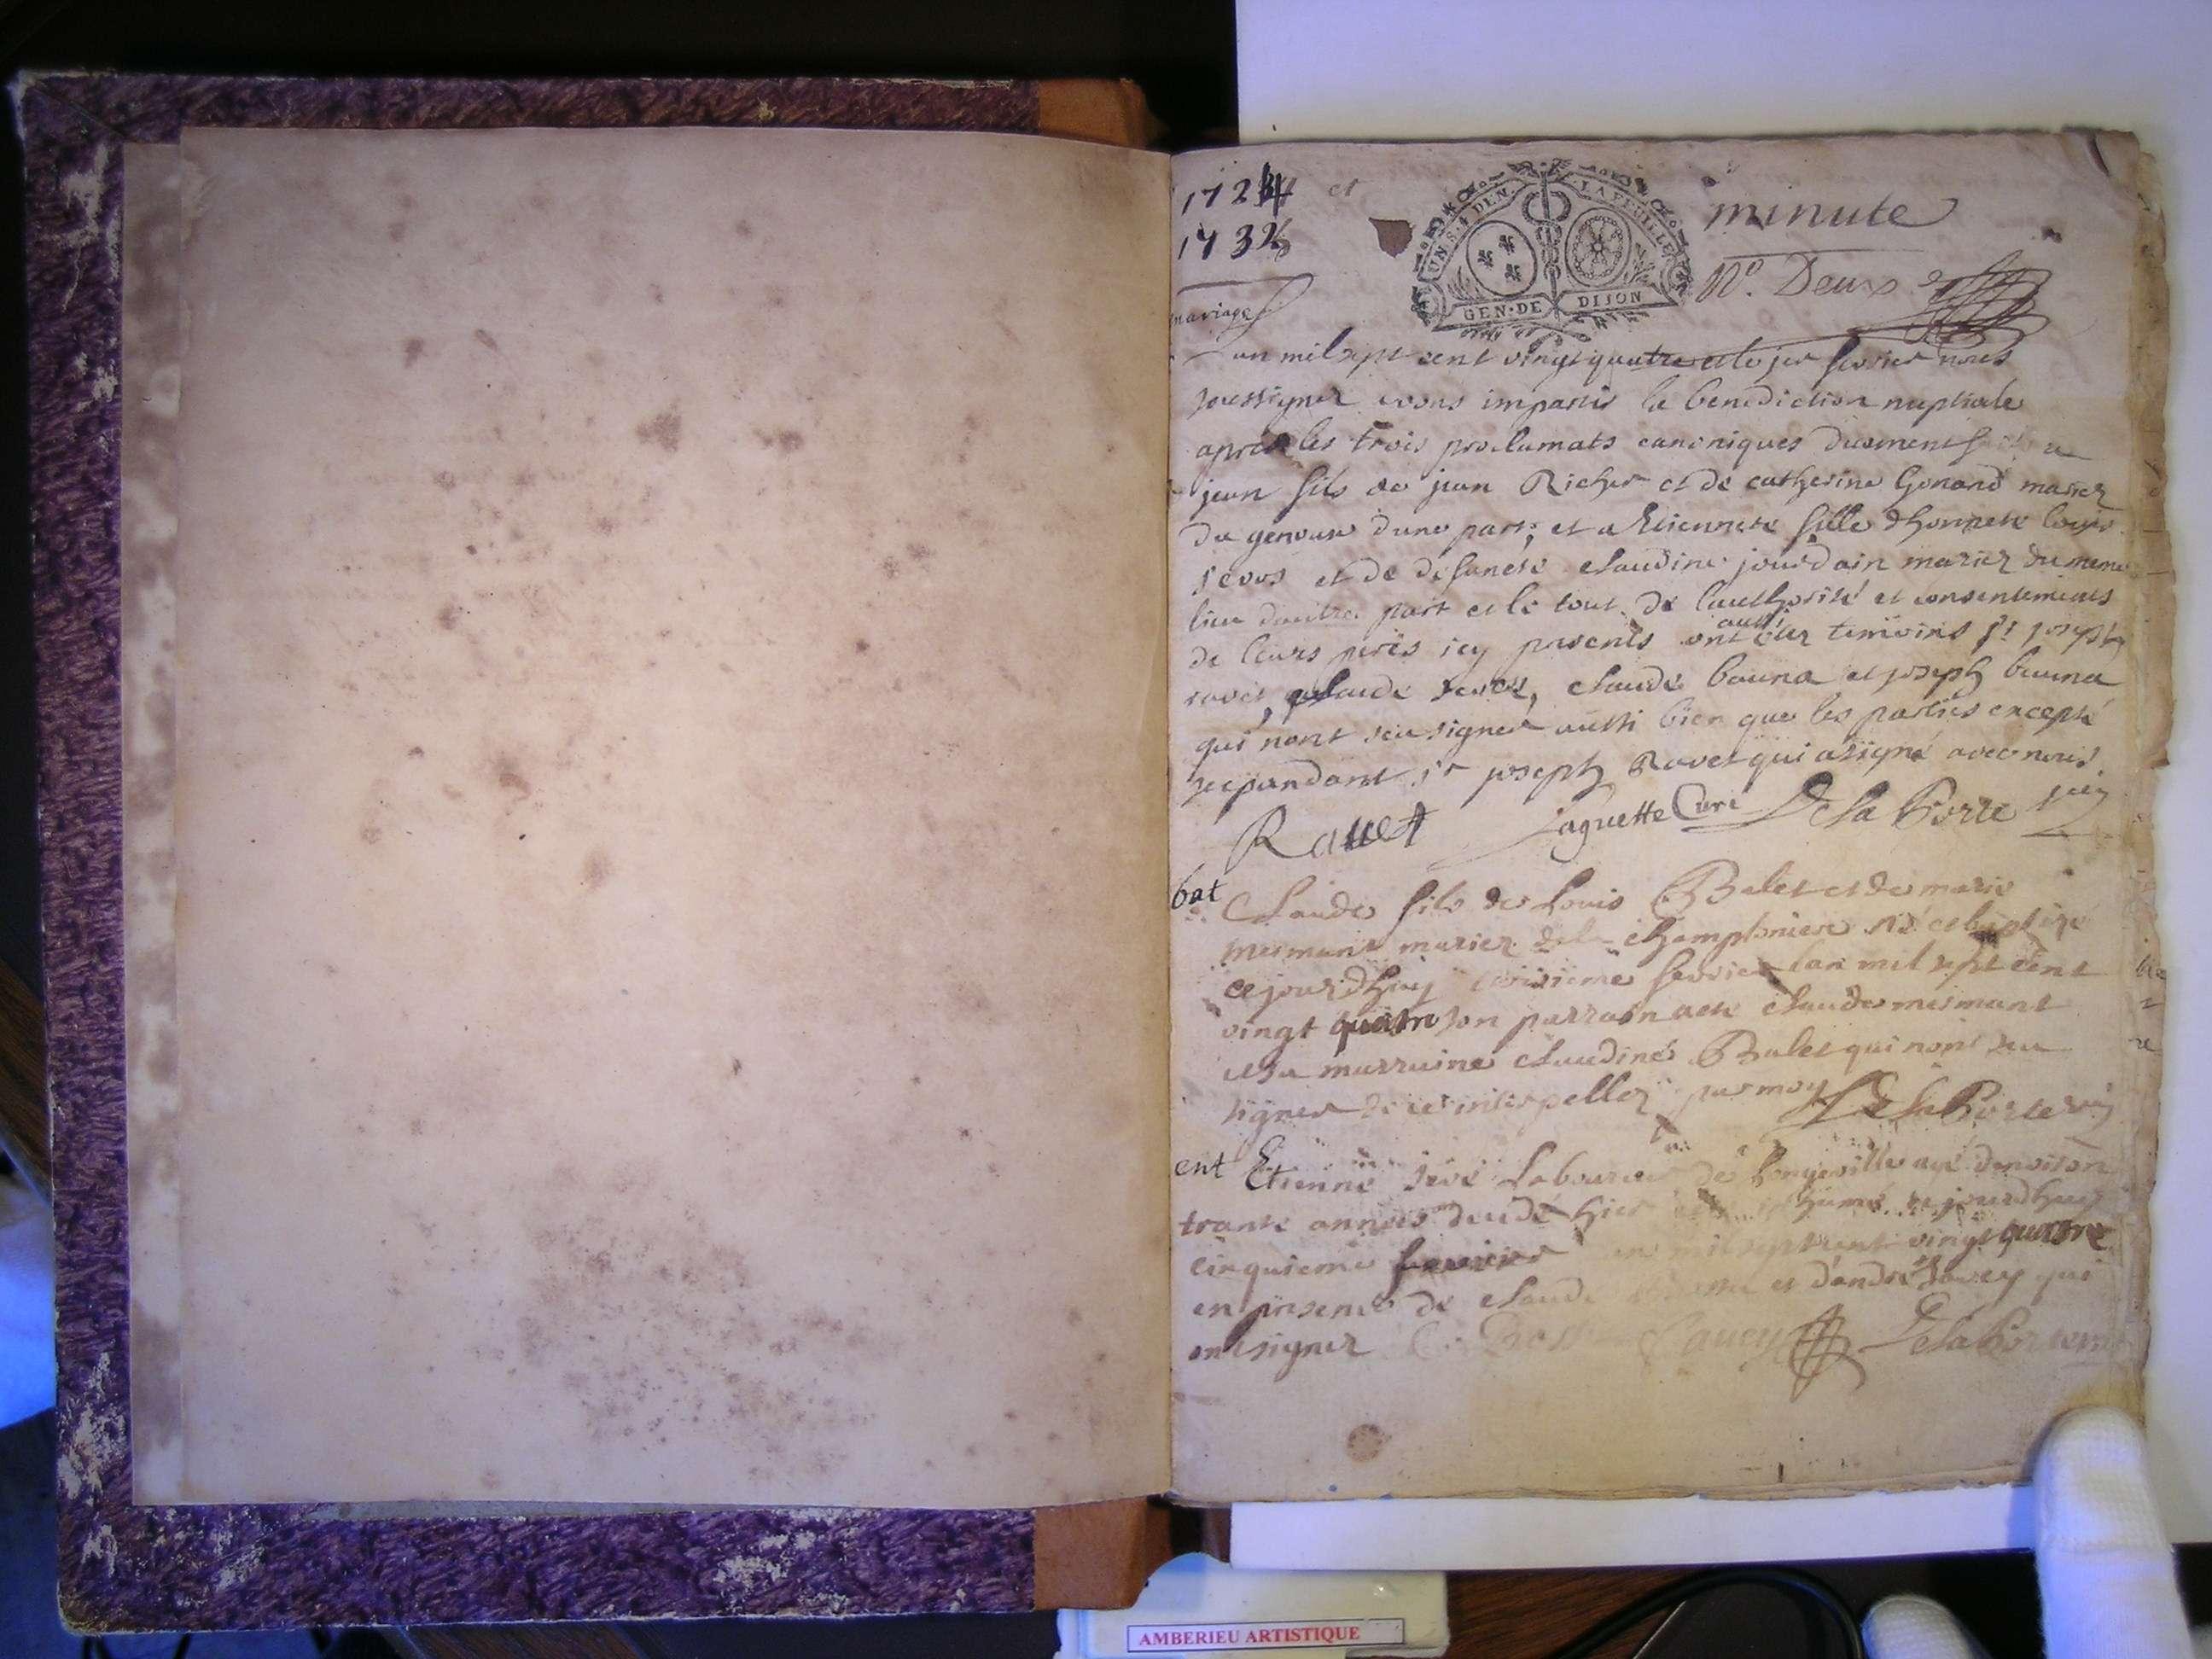 1724 et
1732
UN S. 4 DEN. LA FEUILLE
GEN. DE DIJON
minute
N.º Deux
mariage
an mil sept cent vingt quatre et le jer fevrier nous
soussignez avons imparti la benediction nuptiale
apres les trois proclamats canoniques duement
jean fils de jean Richer et de catherine Gonand mariez
du genoux dune part, et a Etiennete fille dhonnete louis
sevos et de défuncte claudine jourdain mariez du meme
lieu dautre part et le tout de lauthorité et consentements
de leurs peres icy presents ont aussi étez temoins sr joseph
ravet, claude, claude bauna et joseph bauna
qui nont sceu signer aussi bien que les parties excepté
cependant sr joseph Ravet qui a signé avec nous
Ravet Laguette Curé De la Porte
bat
Claude fils de Louis Balet et de marie
mermant mariez de la champloniere né et baptizé
ce jourdhuy troisieme fevrier lan mil sept cent
vingt quatre son parrain a eté claude mermant
et sa marraine claudine Balet qui nont sceu
signer de ce interpellez par moy De la Porte vic
ent
Etienne seve laboureur de Longeville agé denviron
trante années decedé hier et inhumé ce jourdhuy
cinquieme fevrier an mil sept cent vingt quatre
en presence de claude et d'andré Savey qui
ont signez
Savey De la Porte
AMBERIEU ARTISTIQUE